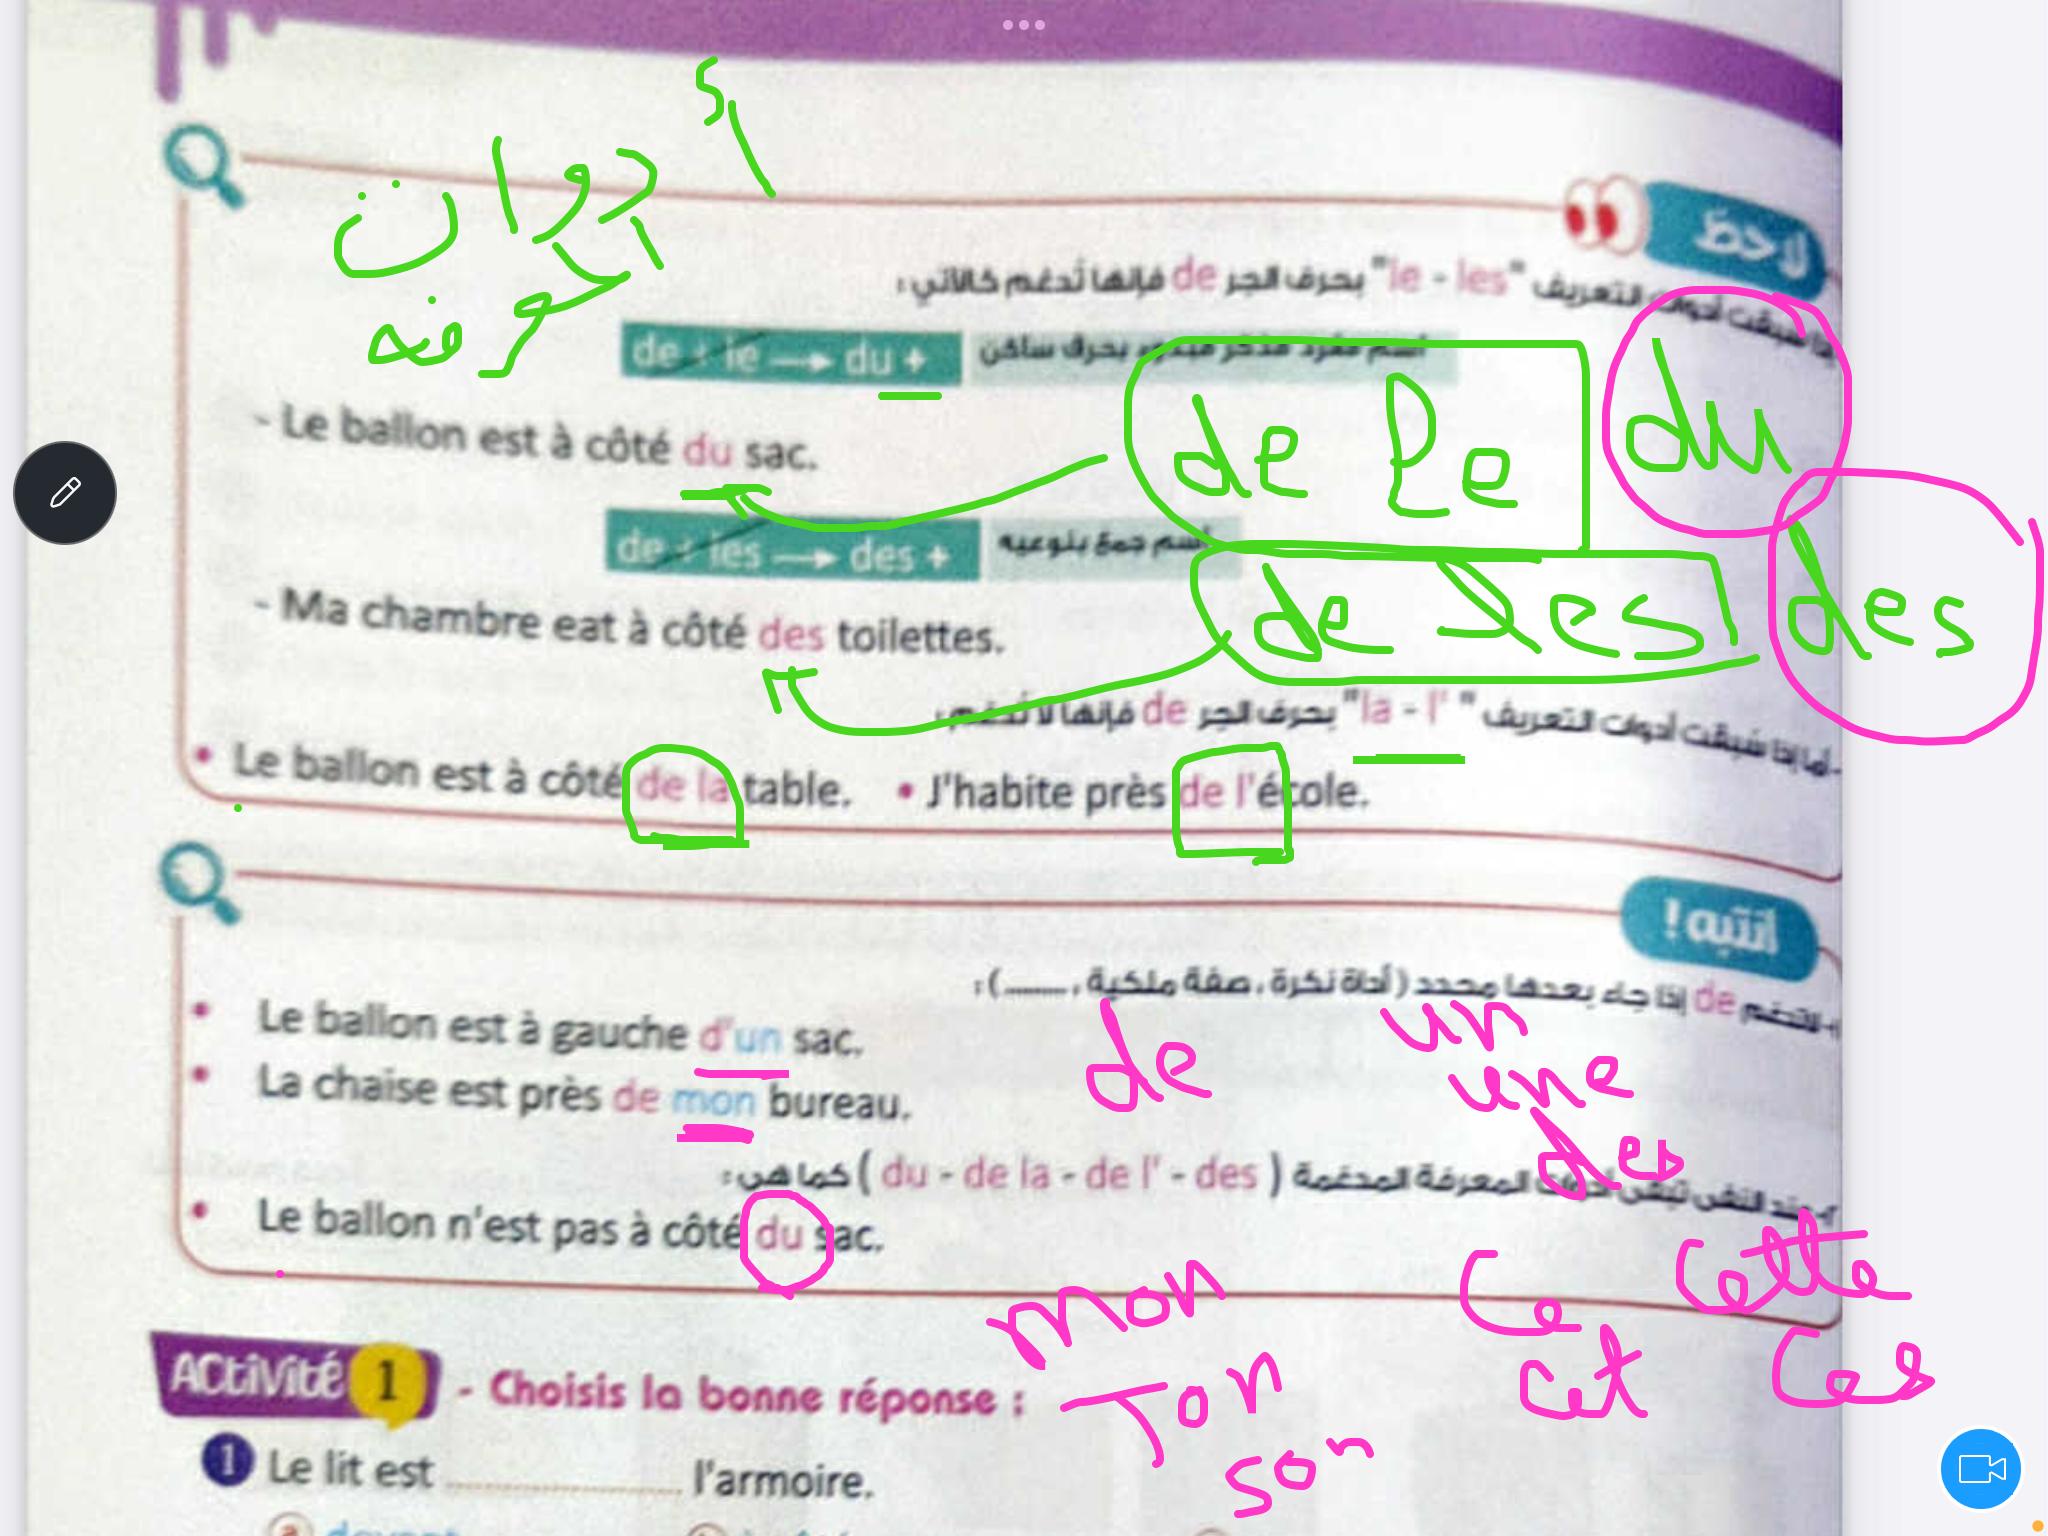 أدوات
المعرفه
لاحظ
إذا سبقت أدوات التعريف "le - les" بحرف الجر de فإنها تُدغم كالآتي :
de + le → du + اسم مفرد مذكر مبدوء بحرف ساكن
de le du
- Le ballon est à côté du sac.
de + les → des + اسم جمع بنوعيه
de les des
- Ma chambre eat à côté des toilettes.
- أما إذا سبقت أدوات التعريف "la - l'" بحرف الجر de فإنها لا تُدغم :
• Le ballon est à côté de la table. • J'habite près de l'école.
انتبه !
١- لا تدغم de إذا جاء بعدها محدد ( أداة نكرة ، صفة ملكية ، ........ ) :
• Le ballon est à gauche d'un sac.
de un
une
des
• La chaise est près de mon bureau.
٢- عند النفى تبقى أدوات المعرفة المدغمة ( du - de la - de l' - des ) كما هي :
• Le ballon n'est pas à côté du sac.
mon ce cette
Ton cet ces
son
Activité 1 - Choisis la bonne réponse :
1 Le lit est ............ l'armoire.
a devant